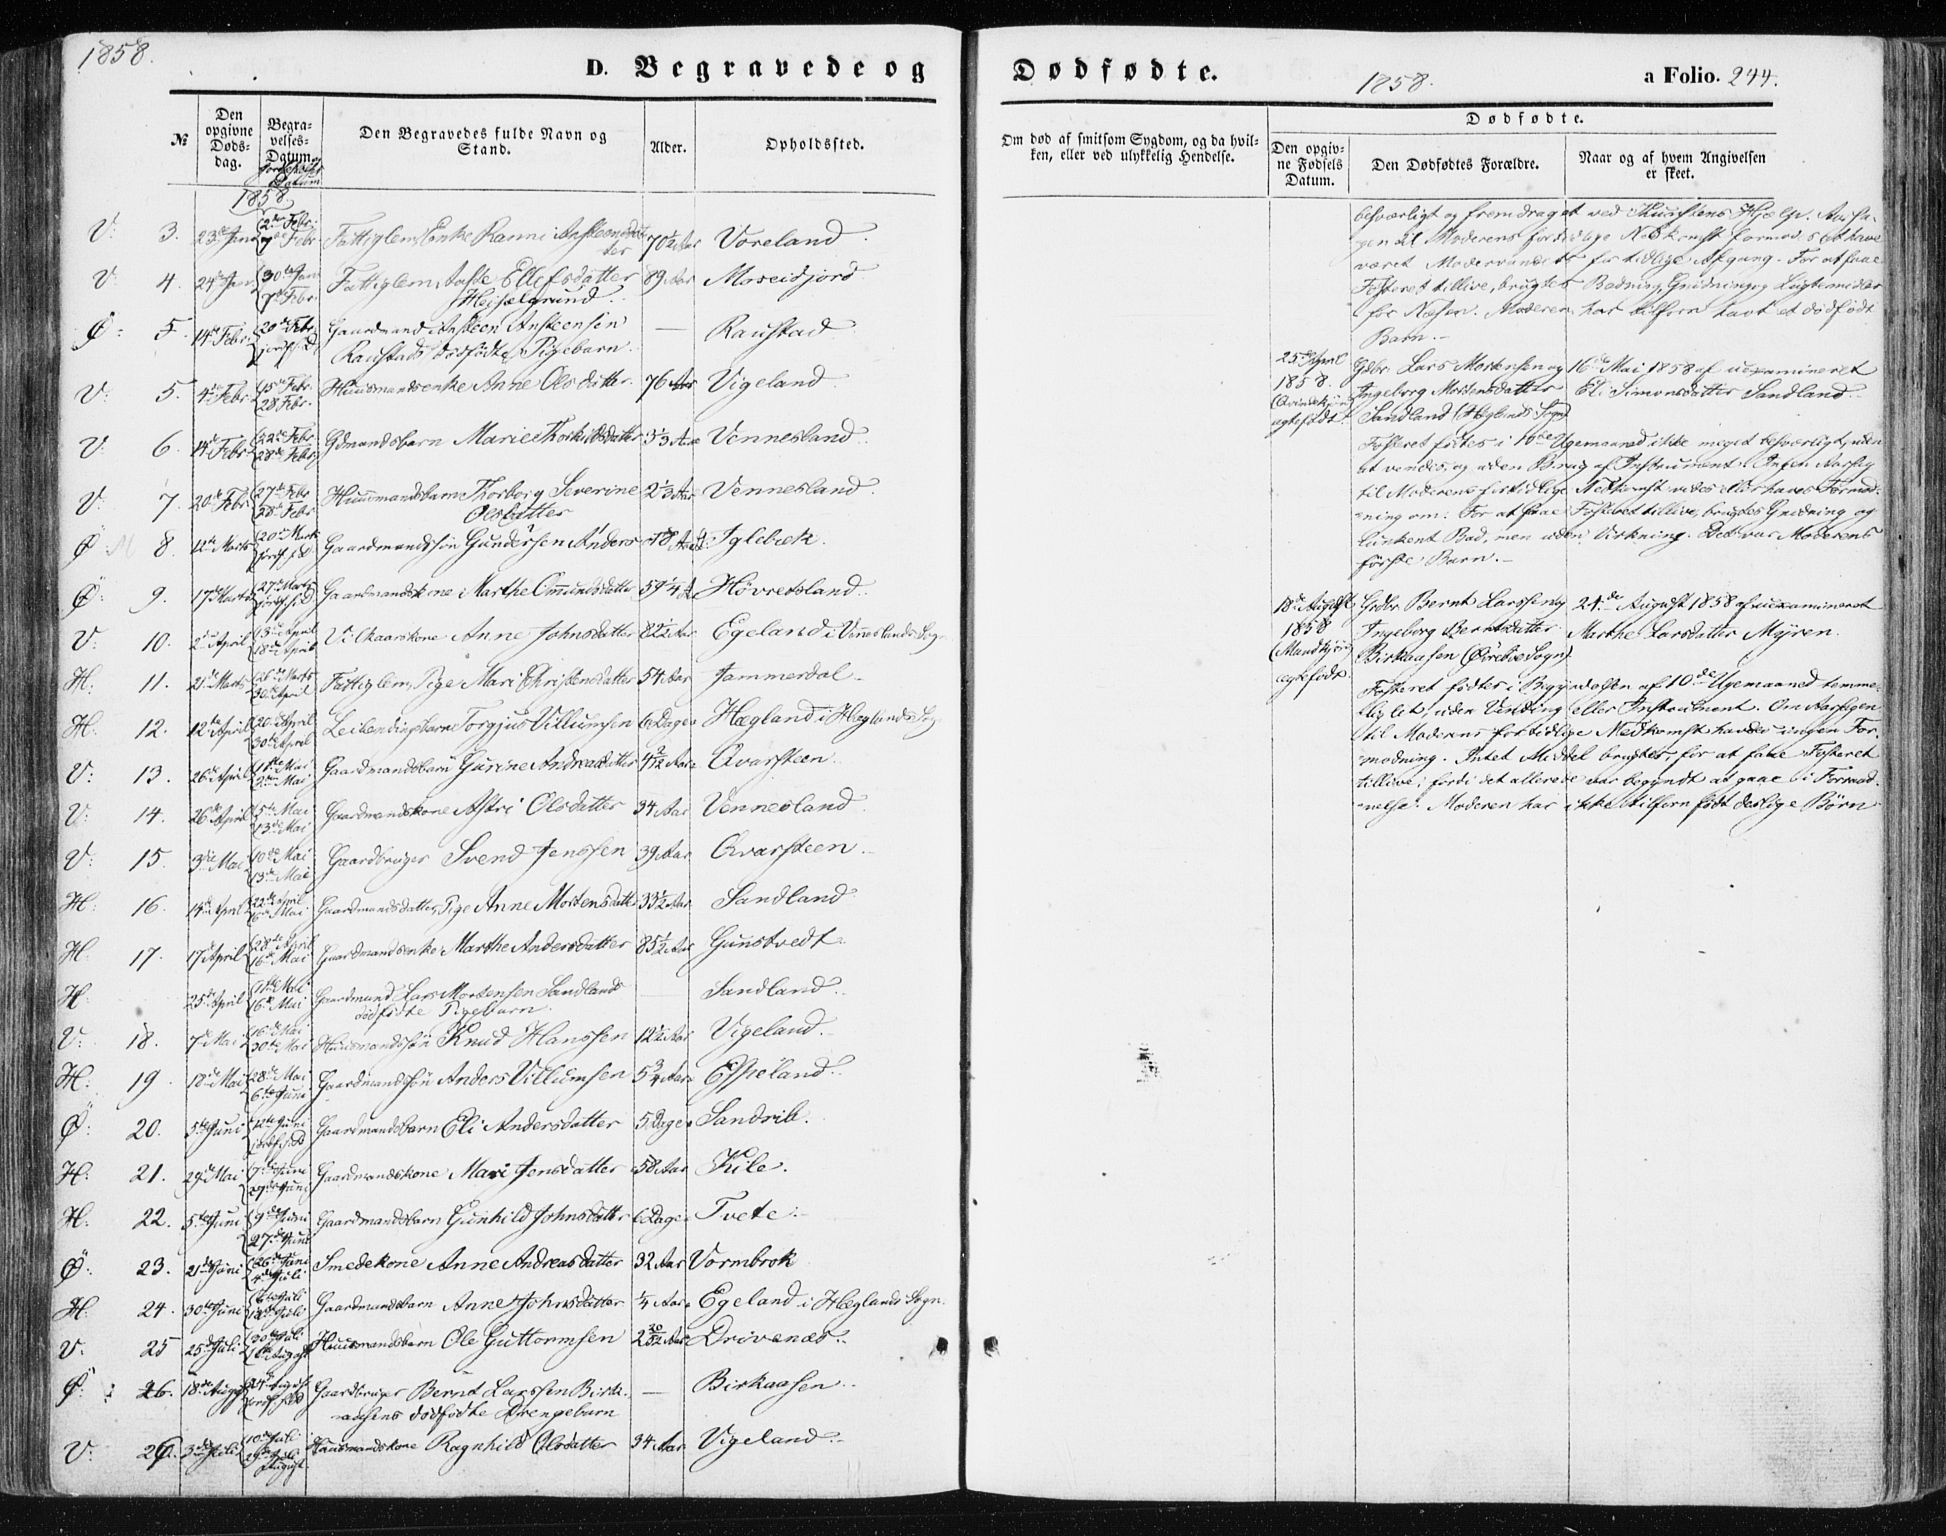 1858.
D. Begravede og
Dødfødte.
1858.
a Folio. 244.
№
Den opgivne Døds-dag.
Begra-velses-Datum og Jordfæstelses Datum
Den Begravedes fulde Navn og Stand.
Alder.
Opholdssted.
Om død af smitsom Sygdom, og da hvil-ken, eller ved ulykkelig Hendelse.
Dødfødte.
Den opgiv-ne Fødsels Datum.
Den Dødfødtes Forældre.
Naar og af hvem Angivelsen er skeet.
1858
V: 3. 23de Janr 2den Febr. 7de Febr Fattiglem, Enke Ranni Ansteensdatter 70½ Aar Voreland.
V: 4. 24de Janr 30te Jan 7de Febr. Fattiglem, Aaste Ellefsdatter 89 Aar Moseidjord
Heiselgrund.
Ø: 5. 14de Febr. 20de Febr. jordf. s. D. Gaardmand Ansteen Ansteensen — Raustad
Raustads dødfødte Pigebarn.
V: 5. 4de Febr. 15de Febr. 28 Febr. Huusmandsenke Anne Olsdatter. 76 Aar Vigeland.
V: 6. 14de Febr. 22de Febr 28de Febr. Gdmandsbarn Marie Thorkildsdatter 3⅓ Aar Vennesland.
V: 7. 20de Febr. 27de Febr 28de Febr Huusmandsbarn Thorborg Severine 2⅓ Aar Vennesland.
Olsdatter
Ø 8. 12te Marts 20de Marts jordf. s. d. Gaardmandssøn Gundersen Anders 18 Aar Iglebæk.
Ø: 9. 17de Marts 27de Marts jordf. s. D Gaardmandskone Marthe Omundsdatter 59¼ A Høvretsland.
V: 10. 2den April 13de April 18de April Vilkaarskone Anne Johnsdatter 82½ Aar Egeland i Venneslands Sogn
H: 11. 21de Marts 26de Marts 30te April Fattiglem, Pige Mari Christensdatter 54 Aar Jammerdal.
H: 12. 12te April 20de April 30te April Leilendingsbarn Torgjus Villumsen 6 Dage Hægland i Hæglands Sogn
V: 13. 26de April 1ste Mai 2den Mai Gaardmandsbarn Gurine Andreasdatter Aar Qvarsteen.
V: 14. 26de April 5te Mai 13de Mai Gaardmandskone Astri Olsdatter 34 Aar Vennesland.
V: 15. 3die Mai 10de Mai 13de Mai Gaardbruger Svend Jenssen 39 Aar Qvarsteen.
H: 16. 14de April 22de April 16de Mai Gaardmandsdatter, Pige Anne Mortensdatter 33½ Aar Sandland
H: 17. 17de April 28de April 16de Mai Gaardmandsenke Marthe Andersdatter 85½ Aar Gunstvedt.
H: 25de April 1ste Mai 16de Mai Gaardmand Lars Mortensen Sandlands — Sandland.
dødfødte Pigebarn.
V: 18. 7de Mai 16de Mai 30te Mai Huusmandssøn Knud Hanssen 12½ Aar Vigeland.
H: 19. 18de Mai 28de Mai 6te Juni Gaardmandssøn Anders Villumsen 5¾ Aar Espeland.
Ø: 20. 5te Juni 12te Juni jordf. s. D Gaardmandsbarn Eli Andersdatter 5 Dage Sandrib.
H: 21. 29de Mai 7de Juni 27de Juni Gaardmandskone Mari Jensdatter 58 Aar Kile.
H: 22. 5te Juni 9de Juni 27de Juni Gaardmandsbarn Gunhild Johnsdatter 6 Dage Tvete.
Ø: 23. 21de Juni 26de Juni 4de Juli Smedekone Anne Andreasdatter 32 Aar Vormbrok
H: 24. 30te Juni Juli Gaardmandsbarn Anne Johnsdatter ¼ Aar Egeland i Hæglands Sogn.
V: 25 25de Juli 30te Juli August Huusmandsbarn Ole Guttormsen 2 20/52 Aar Drivenæs.
Ø: 26. 18de August 24de August jordf. s. D Gaardbruger Bernt Larssen Birk- — Birkaasen.
aasens dødfødte Drengebarn
V: 26. 3de Juli 10de Juli August Huusmandskone Ragnhild Olsdatter 34 Aar Vigeland.
besværligt og fremdraget ved Kunstens Hjælp. Aarsa-
gen til Moderens fortidlige Nedkomst formodes at have
været Modervandets for tidlige Afgang. For at faae
Fosteret tillive, brugtes Badning, Gnidning og Lugtemidler
for Næsen. Moderen har tilforn havt et dødfødt
Barn.—
25de April 1858. (Qvindekjøn) ægtefødt.
Gdbr. Lars Mortensen og Ingeborg Mortensdatter Sandland (Hæglands Sogn)
16de Mai 1858 af uexamineret Eli Simonsdatter Sandland.
Fosteret fødtes i 10de Ugemaaned ikke meget besværligt, uden
at vendes, og uden Brug af Instrument. Ingen Aarsag
til Moderens fortidlige Nedkomst vides eller haves Formod-
ning om. For at faae Fosteret tillive, brugtes Gnidning og
lunkent Bad, men uden Virkning. Det var Moderens
første Barn.—
18de August 1858 (Mandkjøn) ægtefødt.
Gdbr. Bernt Larssen og Ingeborg Berntsdatter Birkaasen (Øvrebø Sogn)
24de August 1858 af uexamineret Marthe Larsdatter Myren.
Fosteret fødtes i Begyndelsen af 10de Ugemaaned temme-
lig let, uden Vending eller Instrument. Om Aarsagen
til Moderens fortidlige Nedkomst havdes ingen For-
modning. Intet Middel brugtes, for at faae Fosteret
tillive, fordi det allerede var begyndt at gaae i Forraad-
nelse. Moderen har ikke tilforn født deslige Børn